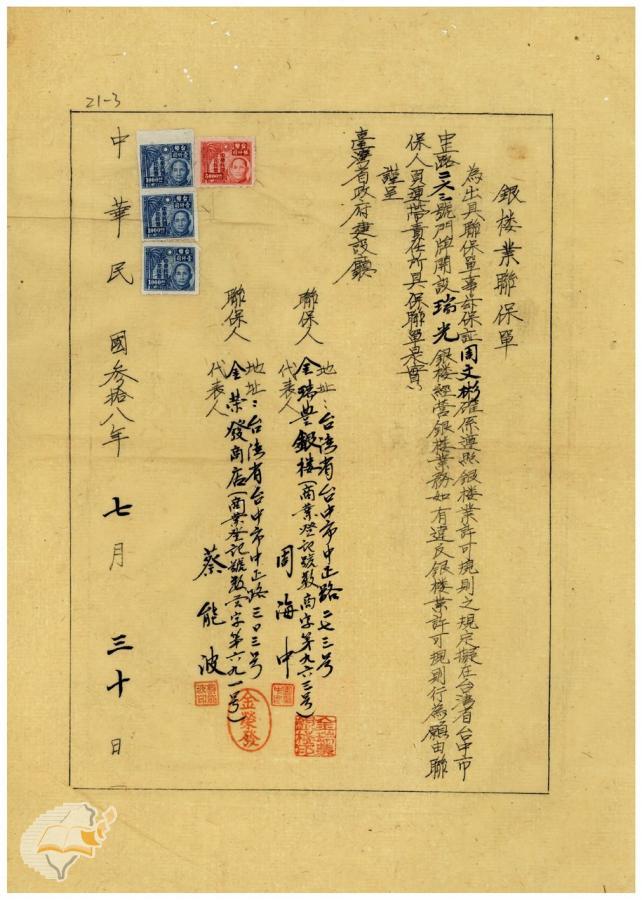 21-3
銀楼業聯保單
為出具聯保單事茲保証周文彬確係遵照銀楼業許可規則之規定擬在台湾省台中市
中正路二六三號門牌開設瑞光銀楼經营銀楼業務如有違反銀楼業許可規則行為願由聯
保人負連帶責任所具保聯單是實
謹呈
臺灣省政府建設廳
地址：台湾省台中市中正路二七三号
聯保人 金瑞豊銀楼（商業登記號数商字第九六三号）
代表人 周海中
地址：台湾省台中市中正路三〇三号
聯保人 金荣發商店（商業登記號数字第六九一号）
代表人 蔡能波
金榮發
中華民國叁拾八年七月三十日
5000
1000
1000
1000